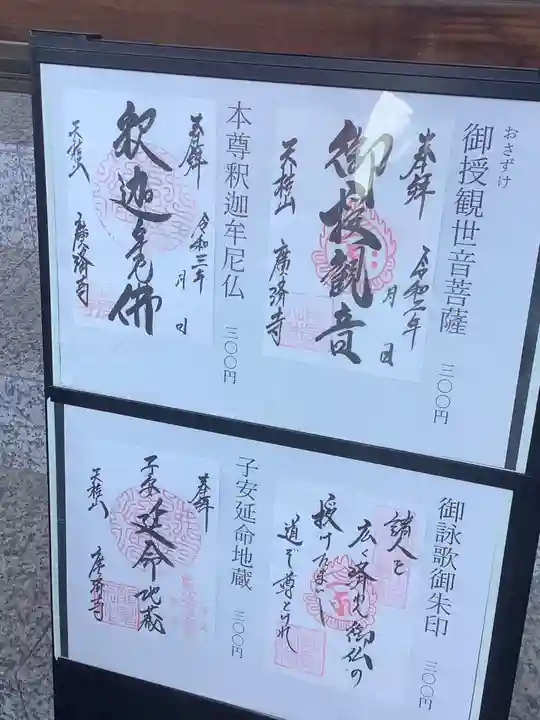 おさずけ
御授観世音菩薩
三〇〇円
奉拝
令和二年
月
日
御授観音
天桂山
廣済寺
本尊釈迦牟尼仏
三〇〇円
奉拝
令和三年
月
日
釈迦牟尼佛
天桂山
廣済寺
御詠歌御朱印
三〇〇円
諸人を
広く済度御仏の
授けたまいし
道ぞ尊とけれ
子安延命地蔵
三〇〇円
奉拝
子安
延命地蔵
天桂山
廣済寺